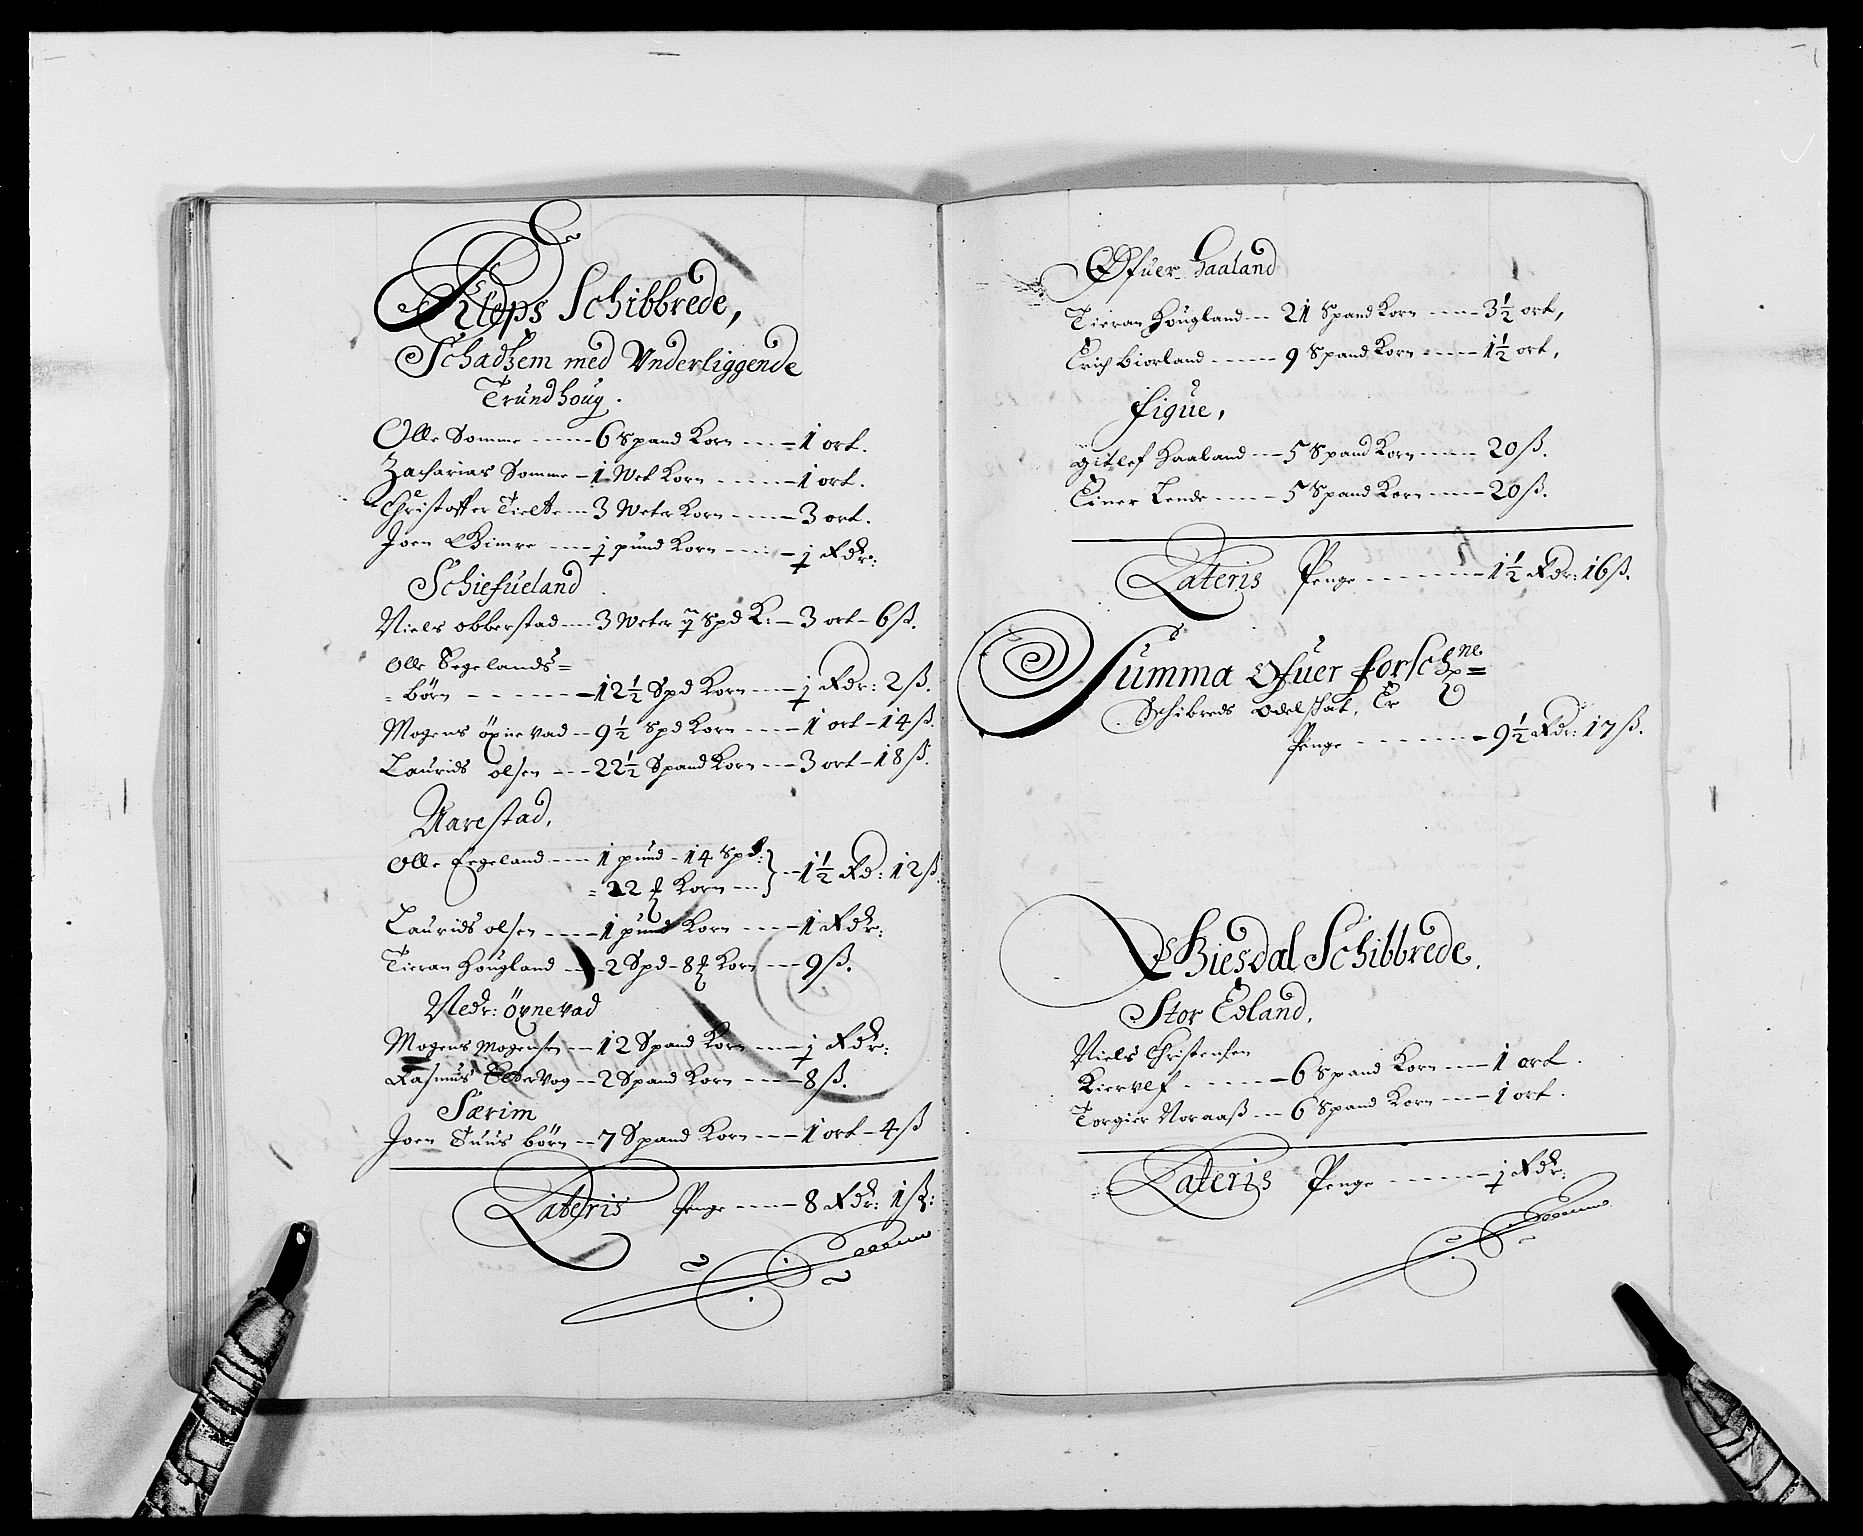 Kleps Schibbrede,
Schadhem med Vnderliggende
Trundhoug.
Olle Somme ---- 6 Spand Korn --- 1 ort.
Zacharias Somme - 1 Wet Korn ---- 1 ort.
Christoffer Tielte -- 3 Weter Korn ---- 3 ort.
Joen Gimre --- 1 pund Korn --- 1 Rdr:
Schiefueland
Niels obberstad --- 3 Weter 7 Spd K: - 3 ort - 6 ß.
Olle Segelands=
=börn ------ 12½ Spd Korn --- 1 Rdr: 2 ß.
Mogens öxnevad -- 9½ Spd Korn ---- 1 ort - 14 ß.
Laurids olsen --- 22½ Spand Korn --- 3 ort - 18 ß.
Aarestad,
Olle Eegeland --- 1 pund - 14 Spd:
= 22 # Korn --- } -- 1½ Rd: 12 ß.
Laurids olsen ---- 1 pund Korn --- 1 Rdr:
Tieran Hougland --- 2 Spd - 8 # Korn --- 9 ß.
Nedr: öxnevad
Mogens Mogensen -- 12 Spand Korn --- 1 Rdr:
Rasmus -- 2 Spand Korn ---- 8 ß.
Særim
Joen Tuus börn -- 7 Spand Korn --- 1 ort - 4 ß
Lateris Penge ---- 8 Rdr: 1 ß:
Øfuer Haaland
Tieran Hougland -- 21 Spand Korn ---- 3½ ort,
Erich Biorland ----- 9 Spand Korn ---- 1½ ort,
Figue,
Gitlef Haaland --- 5 Spand Korn ---- 20 ß.
Einer Lende ---- 5 Spand Korn ---- 20 ß.
Lateris Penge ------- 1½ Rdr: 16 ß.
Summa Ofuer forschne=
Schibreds Odelschat, Er
Penge ------- 9½ Rdr: 17 ß.
Giesdal Schibbrede.
Stor Edland,
Niels Christensen
Kiervlf ----- 6 Spand Korn --- 1 ort.
Torgier Noraaß --- 6 Spand Korn --- 1 ort.
Lateris Penge ----- 1 Rdr: